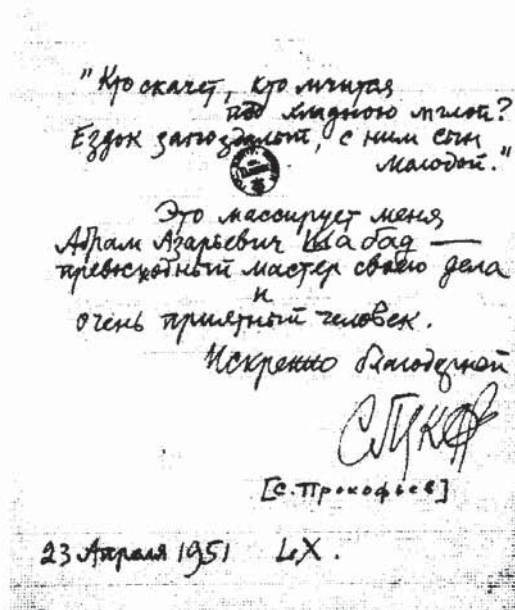 "Кто скачет, кто мчится
под хладною мглой?
Ездок запоздалый, с ним сын
молодой."
Это массирует меня
Абрам Азарьевич Шабад —
превосходный мастер своего дела
и
очень приятный человек.
Искренно благодарный
[С. Прокофьев]
23 Апреля 1951